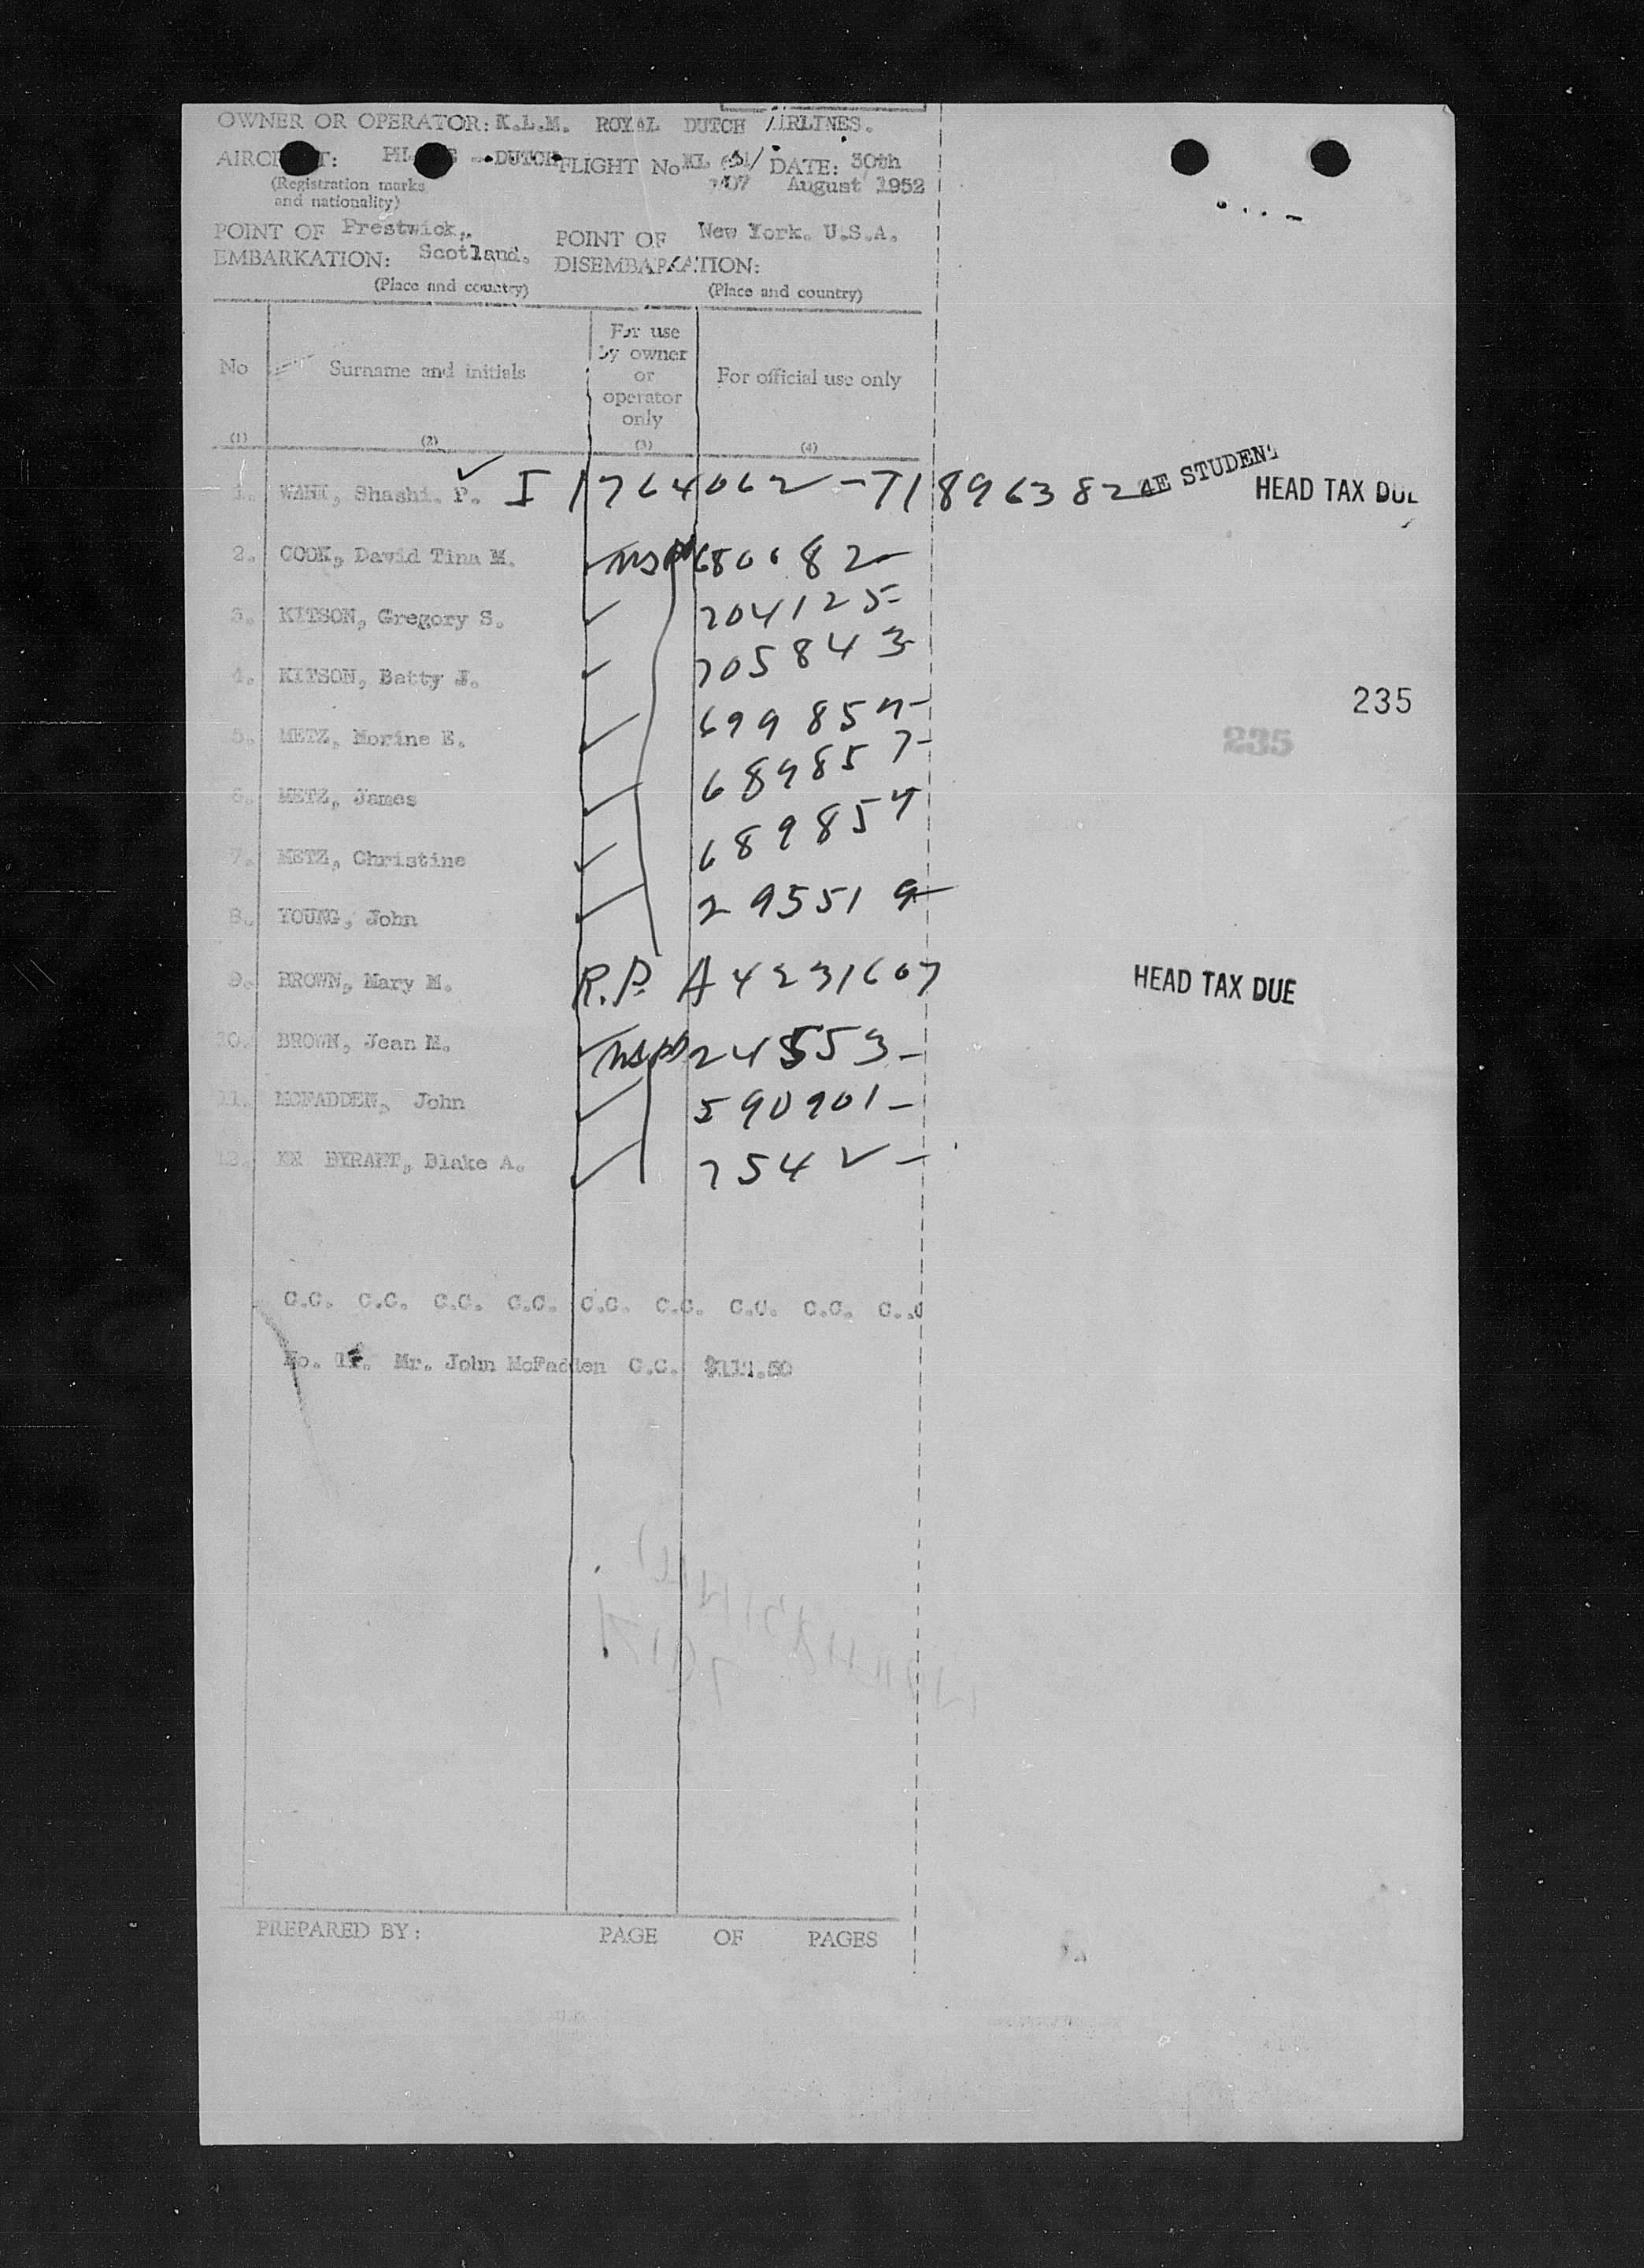 OWNER OR OPERATOR: K.L.M. ROYAL DUTCH AIRLINES.
DUTCH FLIGHT No KL DATE: 30th
(Registration marks August 1952
and nationality)
POINT OF Prestwick, POINT OF New York. U.S.A.
EMBARKATION: Scotland. DISEMBARKATION:
(Place and country) (Place and country)
No Surname and initials For use by owner or operator only For official use only
(1) (2) (3) (4)
1. Shashi. P. I 1764062 - T1896382 4E STUDENT HEAD TAX DUE
2. COOK, David Tina M. 82-
3. KITSON, Gregory S. 204125-
4. KITSON, Betty J. 705843-
235
5. METZ, Norine E.
235
6. METZ, James 689857-
7. METZ, Christine 689857
8. YOUNG, John 295519-
9. BROWN, Mary M. R.P. A4231607 HEAD TAX DUE
10. BROWN, Jean M. 24553-
11. MCFADDEN, John 590901-
12. Blake A. 7542-
C.C. C.C. C.C. C.C. C.C. C.C. C.C. C.C. C..C
No. 11. Mr. John McFadden C.C. $111.50
PREPARED BY: PAGE OF PAGES